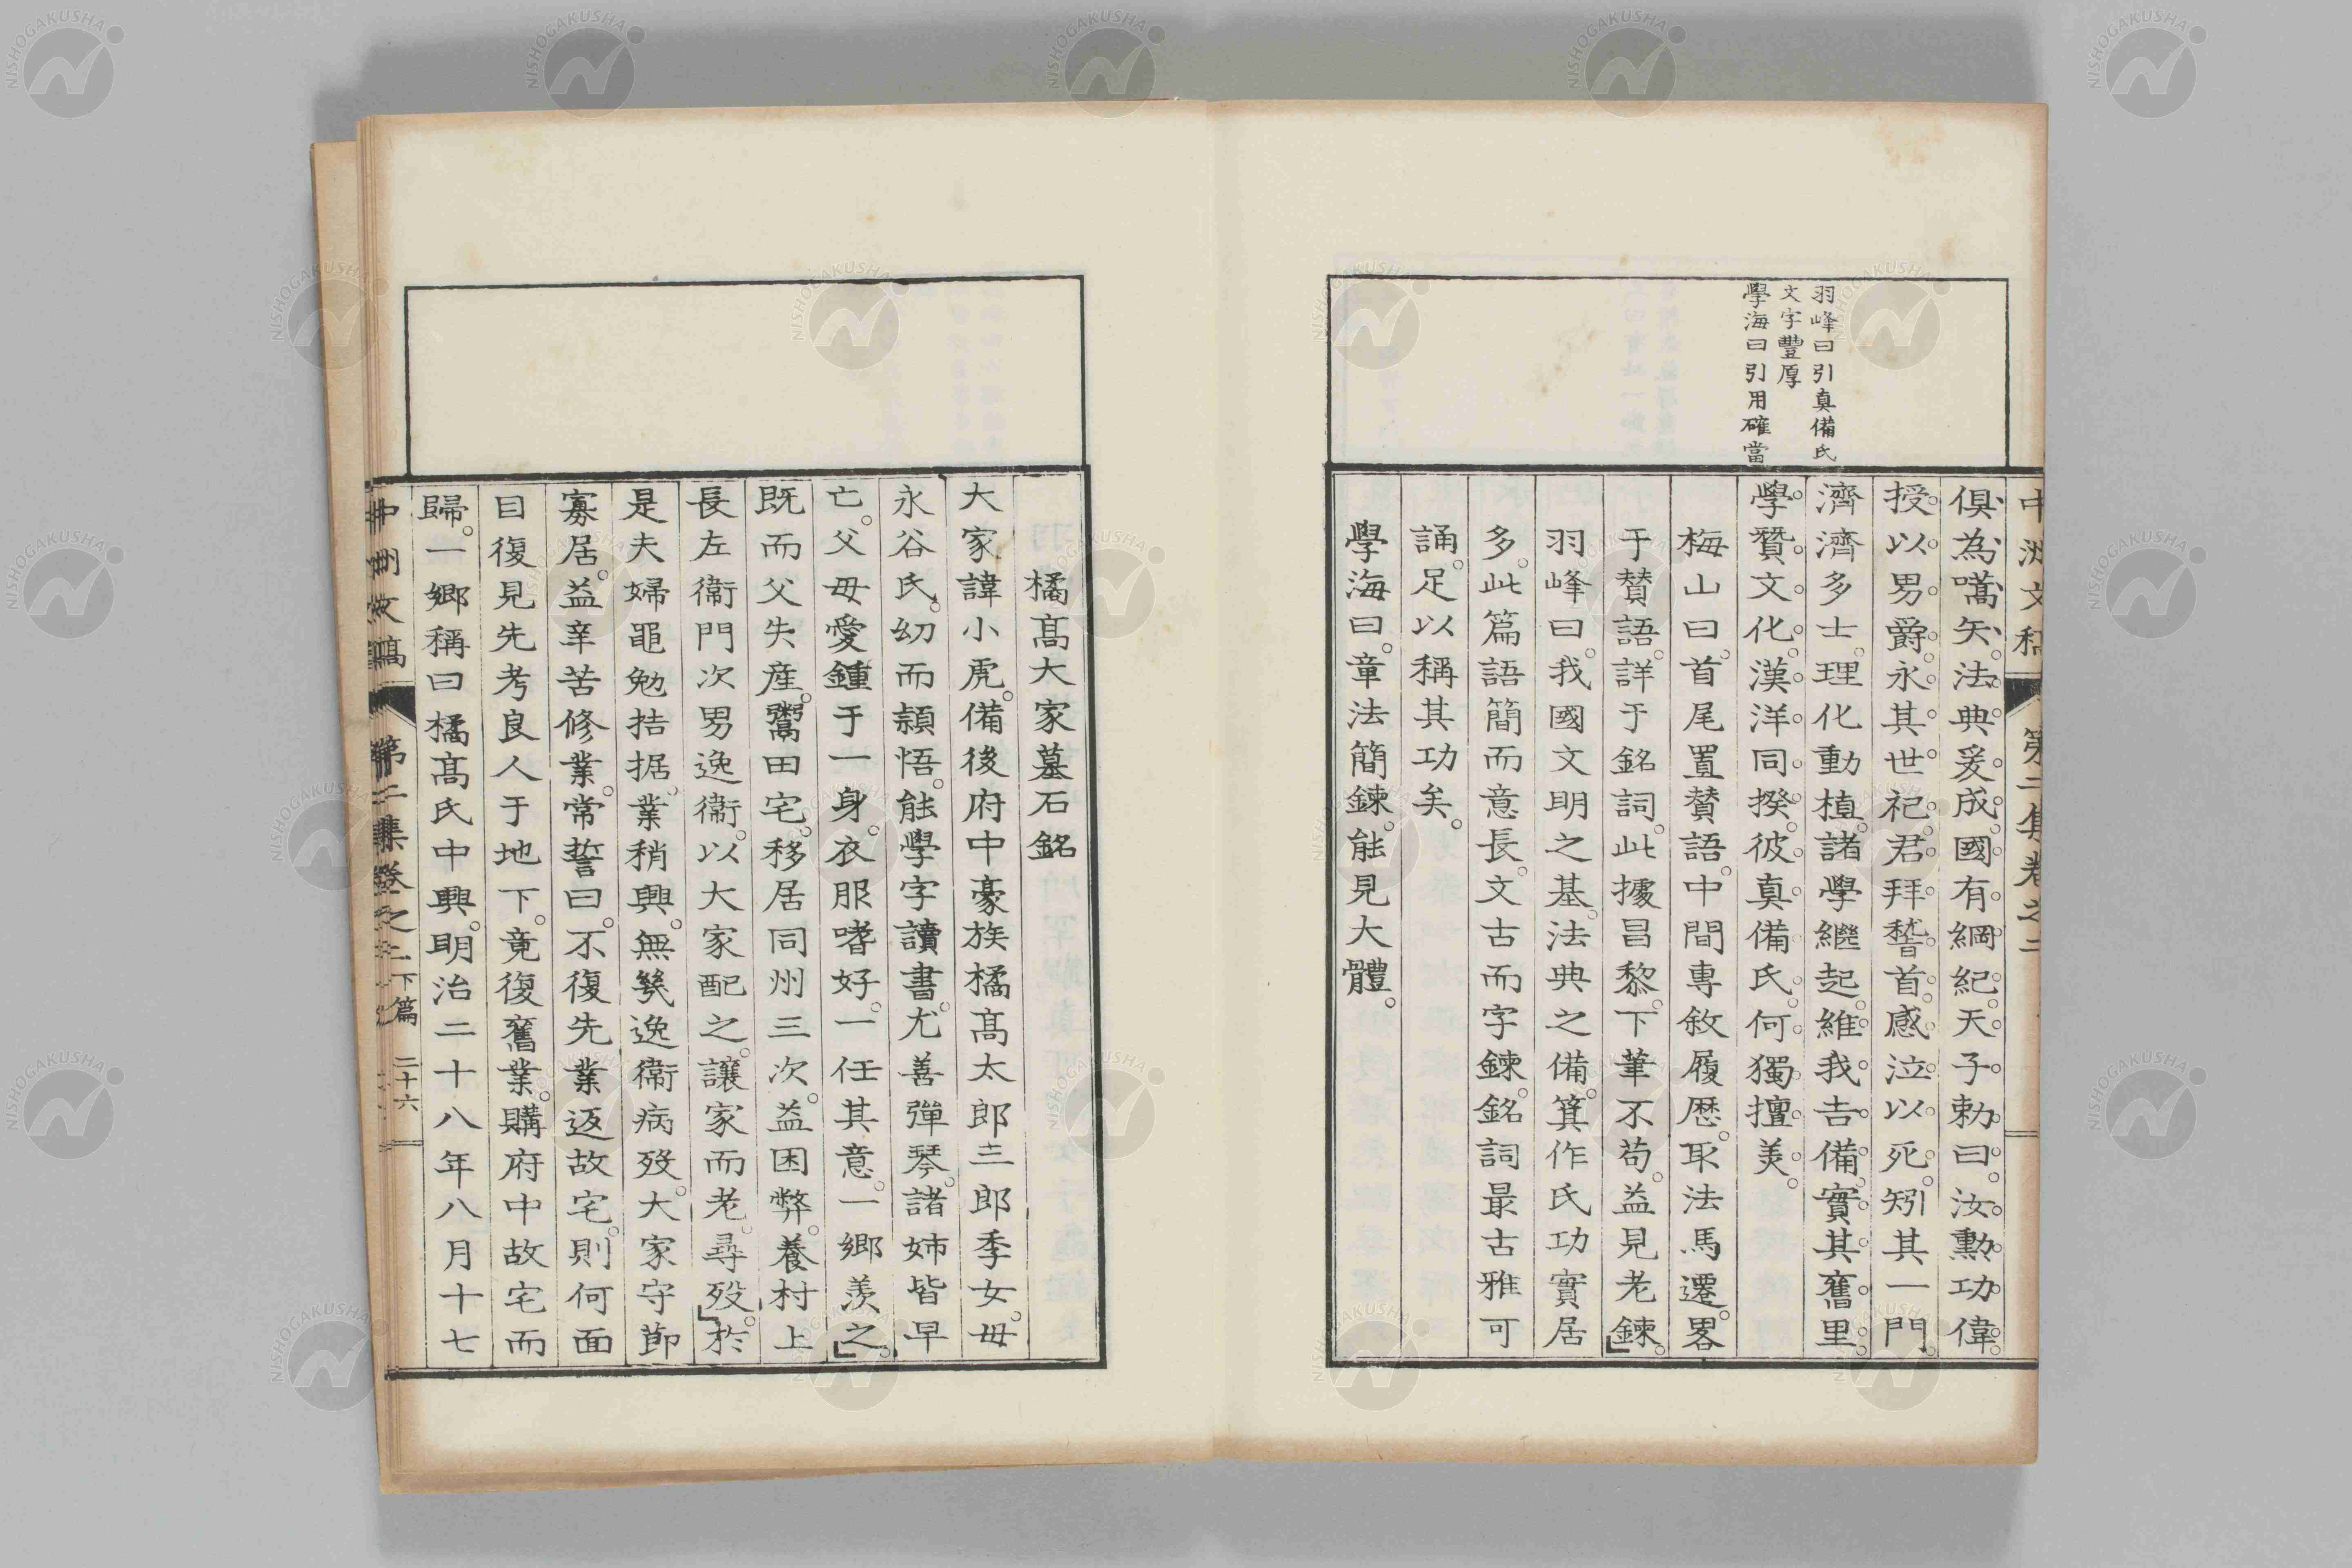 中洲文稿　第二集卷之二
羽峰曰引真備氏
文字豐厚
學海曰引用確當
俱為嚆矢。法典爰成。國有綱紀。天子勅曰。汝勲功偉。
授以男爵。永其世祀。君拜稽首。感泣以死。矧其一門。
濟濟多士。理化動植。諸學繼起。維我吉備。實其舊里。
學贊文化。漢洋同揆。彼真備氏。何獨擅美。
梅山曰。首尾置贊語。中間專敘履歷。取法馬遷。畧
于贊語。詳于銘詞。此據昌黎。下筆不苟。益見老鍊。
羽峰曰。我國文明之基。法典之備。箕作氏功實居
多。此篇語簡而意長。文古而字鍊。銘詞最古雅可
誦。足以稱其功矣。
學海曰。章法簡鍊。能見大體。
橘髙大家墓石銘
大家諱小虎。備後府中豪族橘髙太郎三郎季女。母
永谷氏。幼而穎悟。能學字讀書。尤善彈琴。諸姉皆早
亡。父母愛鍾于一身。衣服嗜好。一任其意。一鄉羨之。
既而父失産。鬻田宅。移居同州三次。益困弊。養村上
長左衞門次男逸衞。以大家配之。讓家而老。尋歿。於
是夫婦黽勉拮据。業稍興。無幾逸衞病歿。大家守節
寡居。益辛苦修業。常誓曰。不復先業返故宅。則何面
目復見先考良人于地下。竟復舊業。購府中故宅而
歸。一鄉稱曰橘髙氏中興。明治二十八年八月十七
中洲文稿　第二集卷之二下篇　二十六